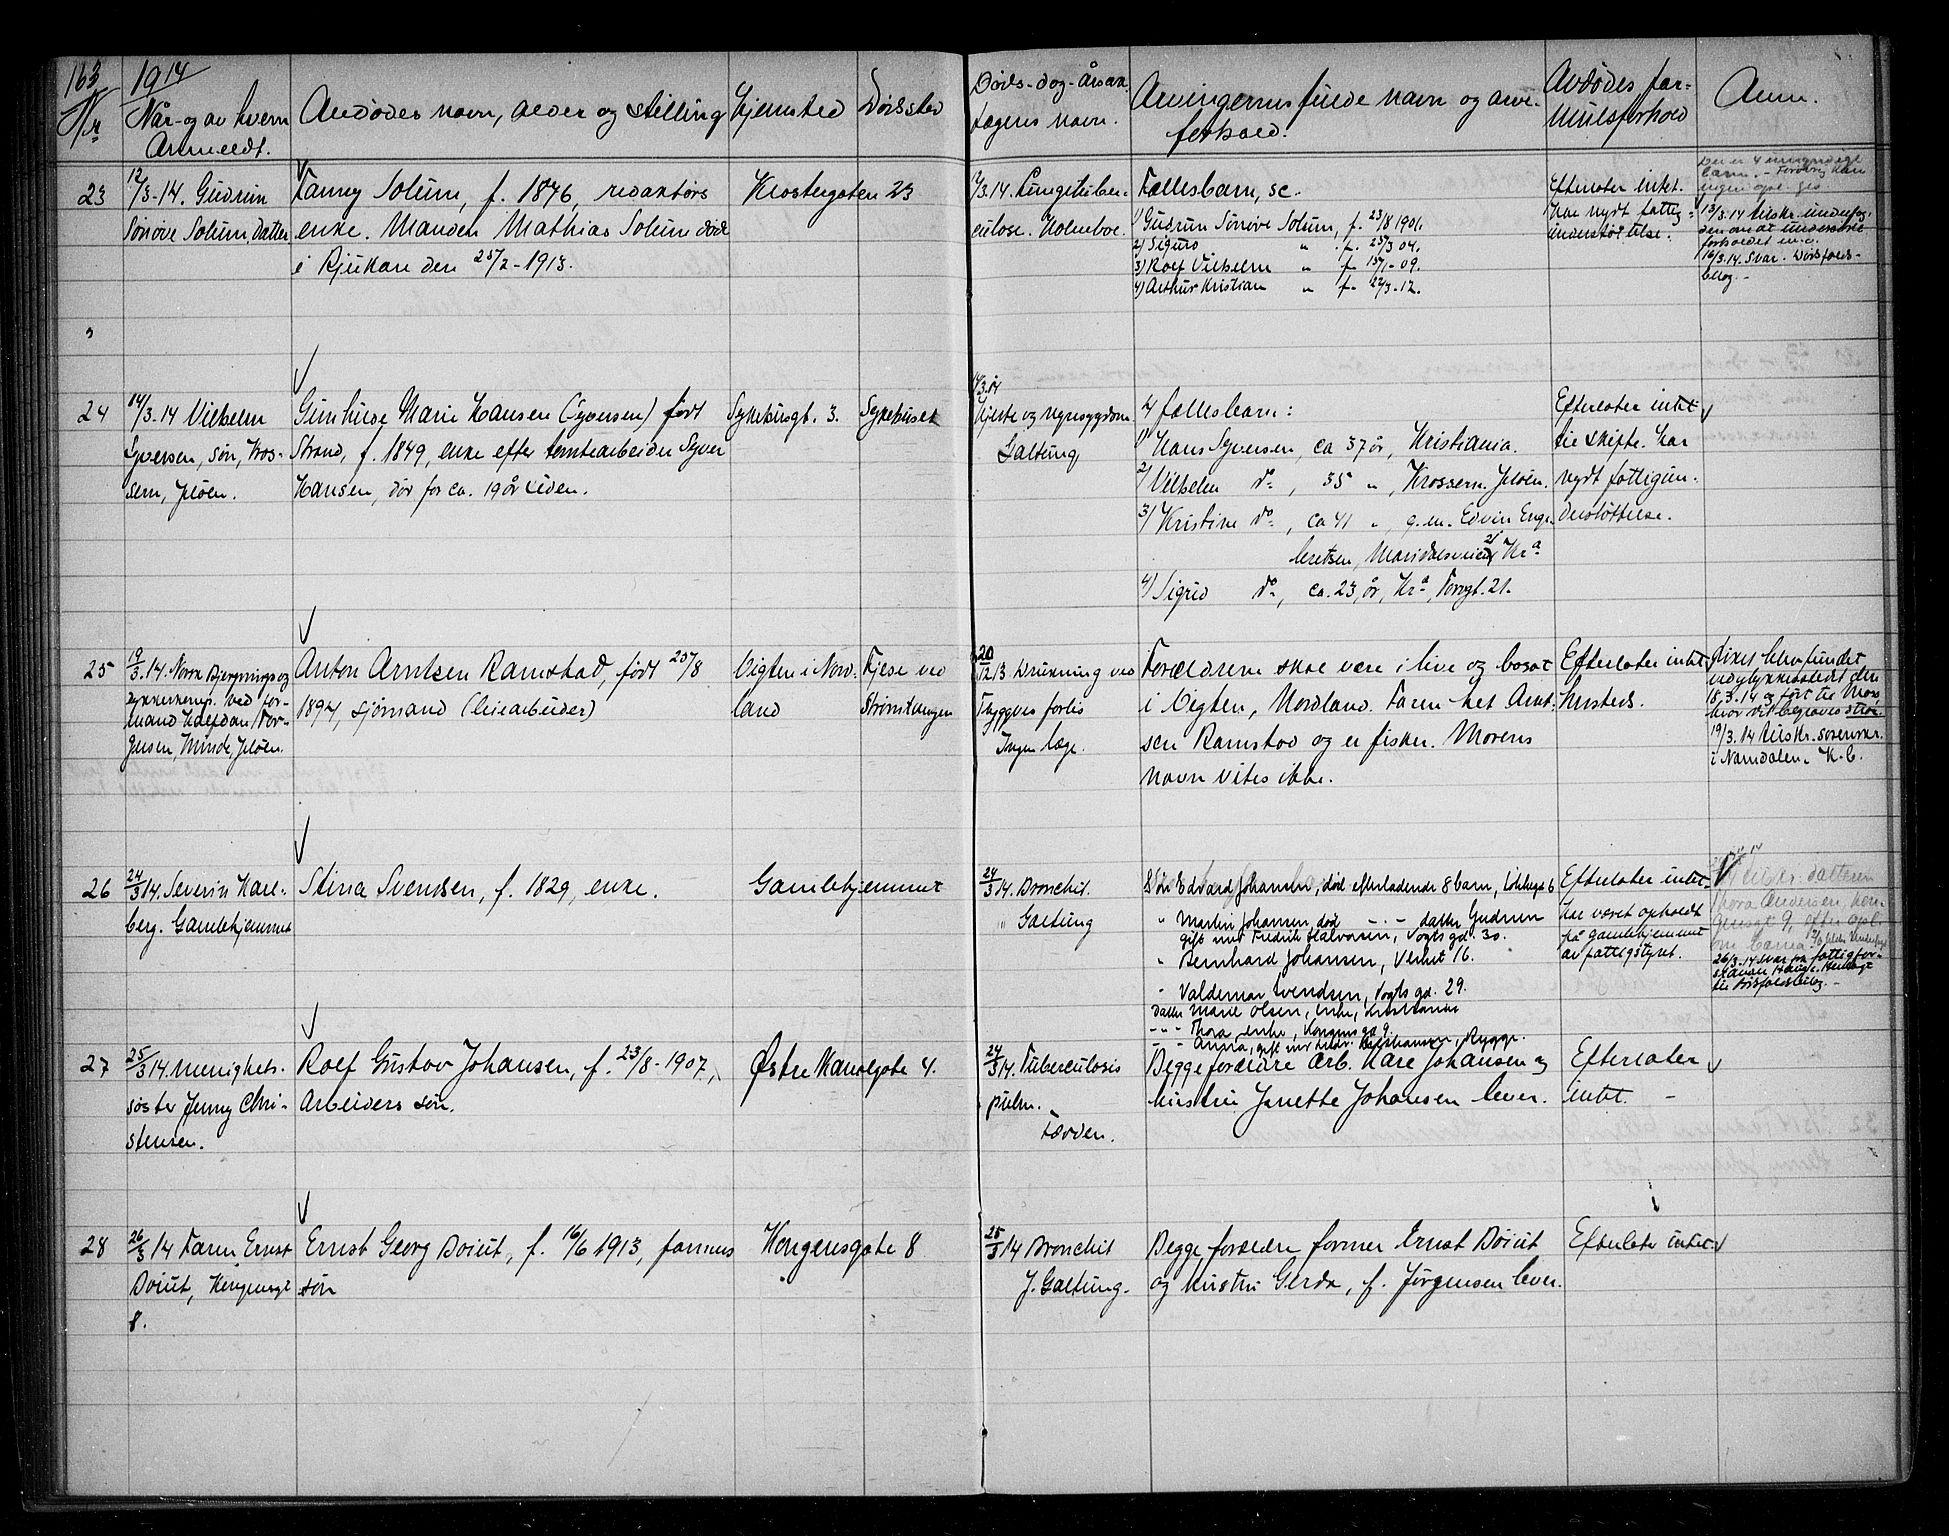 163 1914
Nr
Når- og av hvem
Anmeldt.
Avdødes navn, alder og stilling
Hjemsted
Dødssted
Døds-dag-årsak
Lægens navn.
Arvingernes fulde navn og arve-
forhold.
Avdødes for-
muesforhold
Anm.
23
12/3-14. Gudrun
Synnøve Solum, datter
Fanny Solum, f. 1876, redaktørs
enke. Manden Mathias Solum døde
i Rjukan den 25/2-1913.
Klostergaten 23
3.14. Lungetuber-
culose. Holmboe.
Fællesbarn, sc.
1) Gudrun Synnøve Solum, f. 23/8 1901.
2) Sigurd " f. 25/3 04.
3) Rolf Vilhelm " f. 15/1-09.
4) Arthur Kristian " f. 22/3-12.
Efterlater intet.
Har nydt fattig-
understøttelse.
Der er 4 umyndige
barn.
16/3.14. Svar. Dødsfalds-
bilag.-
24
14/3.14 Vilhelm
Syversen, søn, Kros-
sern, Jeløen.
Gunhilde Marie Hansen (Syversen) født
Strand, f. 1849, enke efter tomtearbeider Syver
Hansen, død for ca. 19 år siden.
Sykehusgt. 3.
Sykehuset
14/3.14
Hjerte og nyresygdom
Galtung
4 fællesbarn:
1) Hans Syversen, ca 37 år, Kristiania.
2) Vilhelm do, 35 ", Krossern. Jeløen.
3) Kristine do, ca 41 ", g.m. Edvin Enge-
bretsen, Maridalsveien 21 Kr.a
4) Sigrid do, ca. 23 år, Kr.a, Torvgt. 21.
Efterlater intet
til skifte. Har
nydt fattigun-
derstøttelse.
25
19/3.14. Norsk Bjergnings og
dykkerkomp. ved for-
mand Halfdan Tor-
gersen, Minde, Jeløen.
Anton Arntsen Ramstad, født 25/8
1894, sjømand (leiearbeider)
Vigten i Nord-
land
Fjeld ved
Strømtangen
20/12 13 Drukning ved
Tryggves forlis
Ingen læge.
Forældrene skal være i live og bosat
i Vigten, Nordland. Faren het Arnt-
sen Ramstad og er fisker. Morens
navn vites ikke.
Efterlater intet
hersteds.
Liket blev fundet
ved ulykkesstedet den
18.3.14 og ført til Moss
hvor det begraves
19/3.14 tilskr. sorenskr.
i Namdalen. K.C.
26
24/3 14. Severin Karl-
berg. Gamlehjemmet
Stina Svendsen, f. 1829, enke.
Gamlehjemmet
24/3 14. Bronchit.
Galtung
Søn Edvard Johansen, død efterladende 8 barn, 6
" Martin Johansen, død -"- datter Gudrun
gift med Fredrik Halvorsen, Vogts gd. 30.
" Bernhard Johansen, Verket 16.
" Valdemar Svendsen, Vogts gd. 29.
Datter Marie Olsen, enke,
-"- Thora, enke, Kongens gd 9.
-"- Anna, gift med Kristiansen, Rygge.
Efterlater intet.
har været opholdt
på gamlehjemmet
av fattigstyret.
Tilskr. datteren
Thora Andersen, Kon-
gensgt 9, efter opl.
om barna.
26/3.14 Svar fra fattigfor-
standeren. Henlagt
til dødsfaldsbilag.-
27
25/3 14. menighets-
søster Jenny Chri-
stensen.
Rolf Gustav Johansen, f. 23/8-1907,
Arbeiders søn.
Østre Kanalgate 4.
24/3 14. Tuberculosis
pulm.
Tevden.
Begge forældre arb. Karl Johansen og
hustru Janette Johansen lever.
Efterlater
intet. -
28
26/3 14 Faren Ernst
Doiut, Kongensgt
8.
Ernst Georg Doiut, f. 16/6 1913, formers
søn
Kongensgate 8
25/3 14 Bronchit
J. Galtung.
Begge forældre former Ernst Doiut
og hustru Gerda, f. Jørgensen lever.
Efterlater intet.